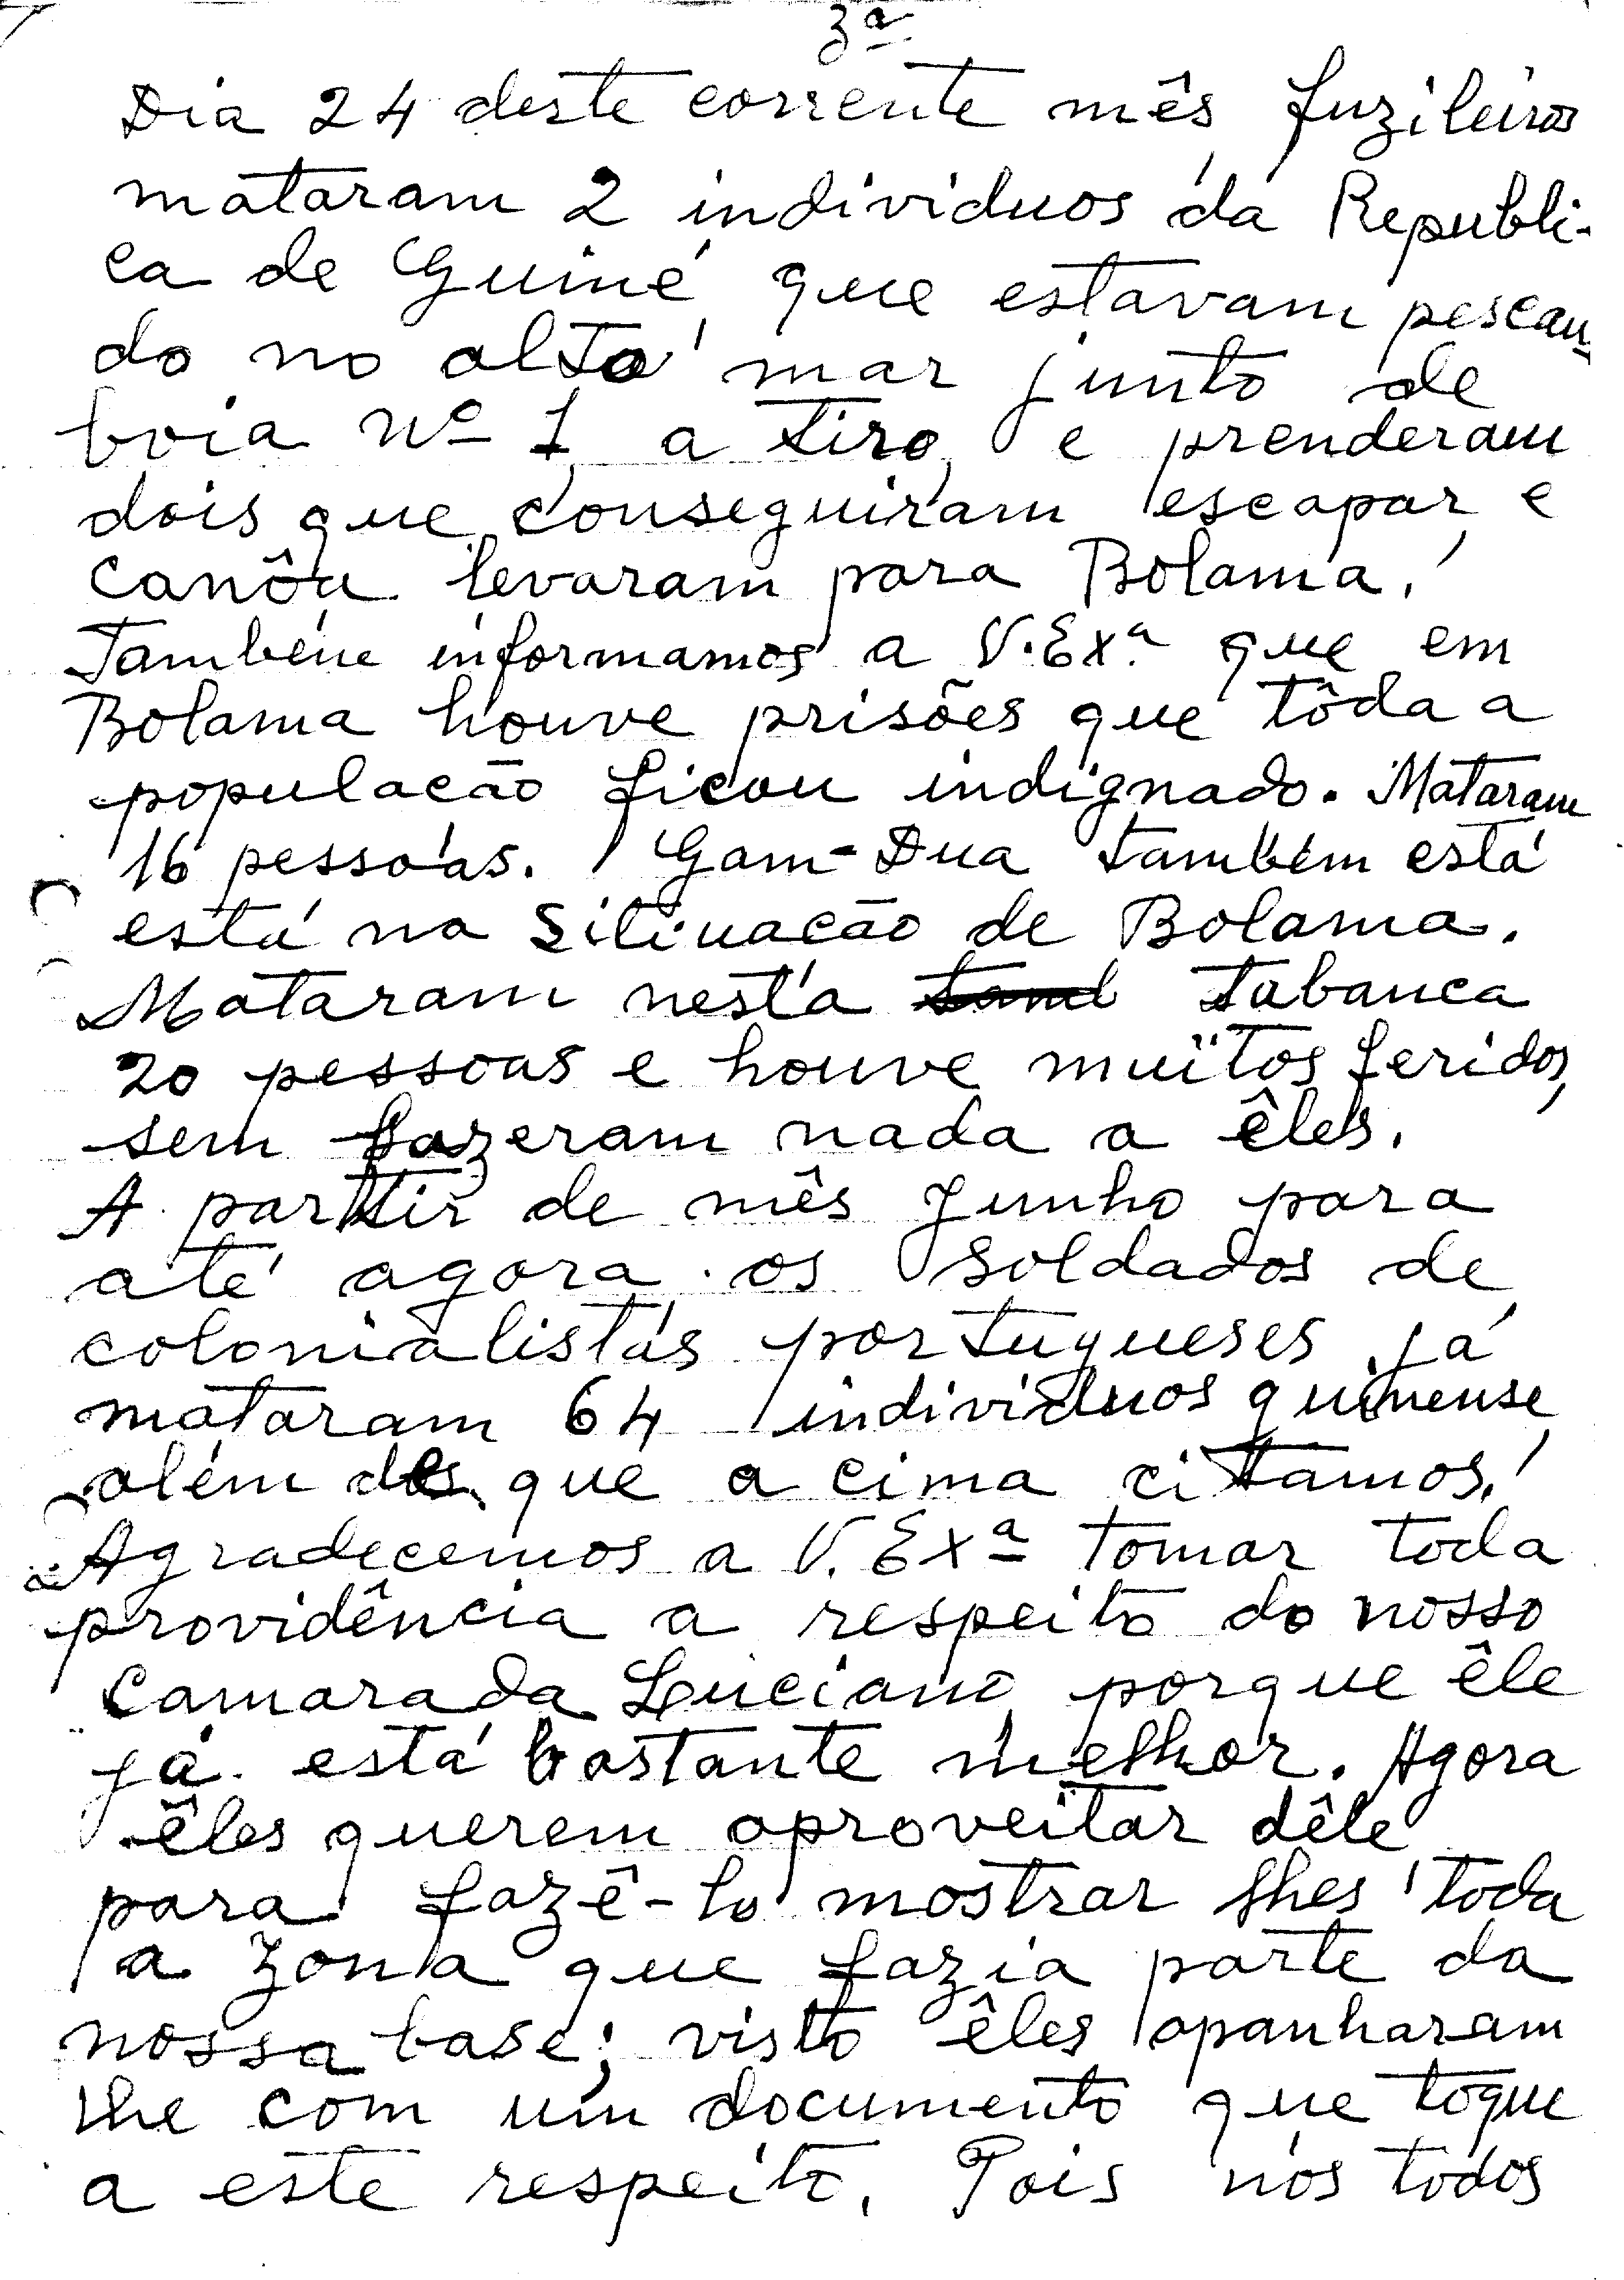 3ª
Dia 24 deste corrente mês fuzileiros
mataram 2 individuos da Republi-
ca de Guiné, que estavam pescan-
do no alto mar junto de
boia nº 1, a tiro, e prenderam
dois que conseguiram escapar, e
canôa levaram para Bolama.
Também informamos a V.Exª que em
Bolama houve prisões que tôda a
populacão ficou indignado. Mataram
16 pessoas. Gam-Dua também está
está na Sitiuacão de Bolama.
Mataram nesta Tabanca
20 pessoas e houve muitos feridos,
sem fazeram nada a êles.
A partir de mês Junho para
até agora os soldados de
colonialistas portugueses já
mataram 64 individuos guinense,
além des que a cima citamos.
Agradecemos a V. Exª tomar toda
providência a respeito do nosso
camarada Luciano, porque êle
já está bastante melhor. Agora
êles querem aproveitar dêle
para fazê-lo mostrar lhes toda
a zona que fazia parte da
nossa base; visto êles apanharam
lhe com um documento que toque
a este respeito. Pois nós todos